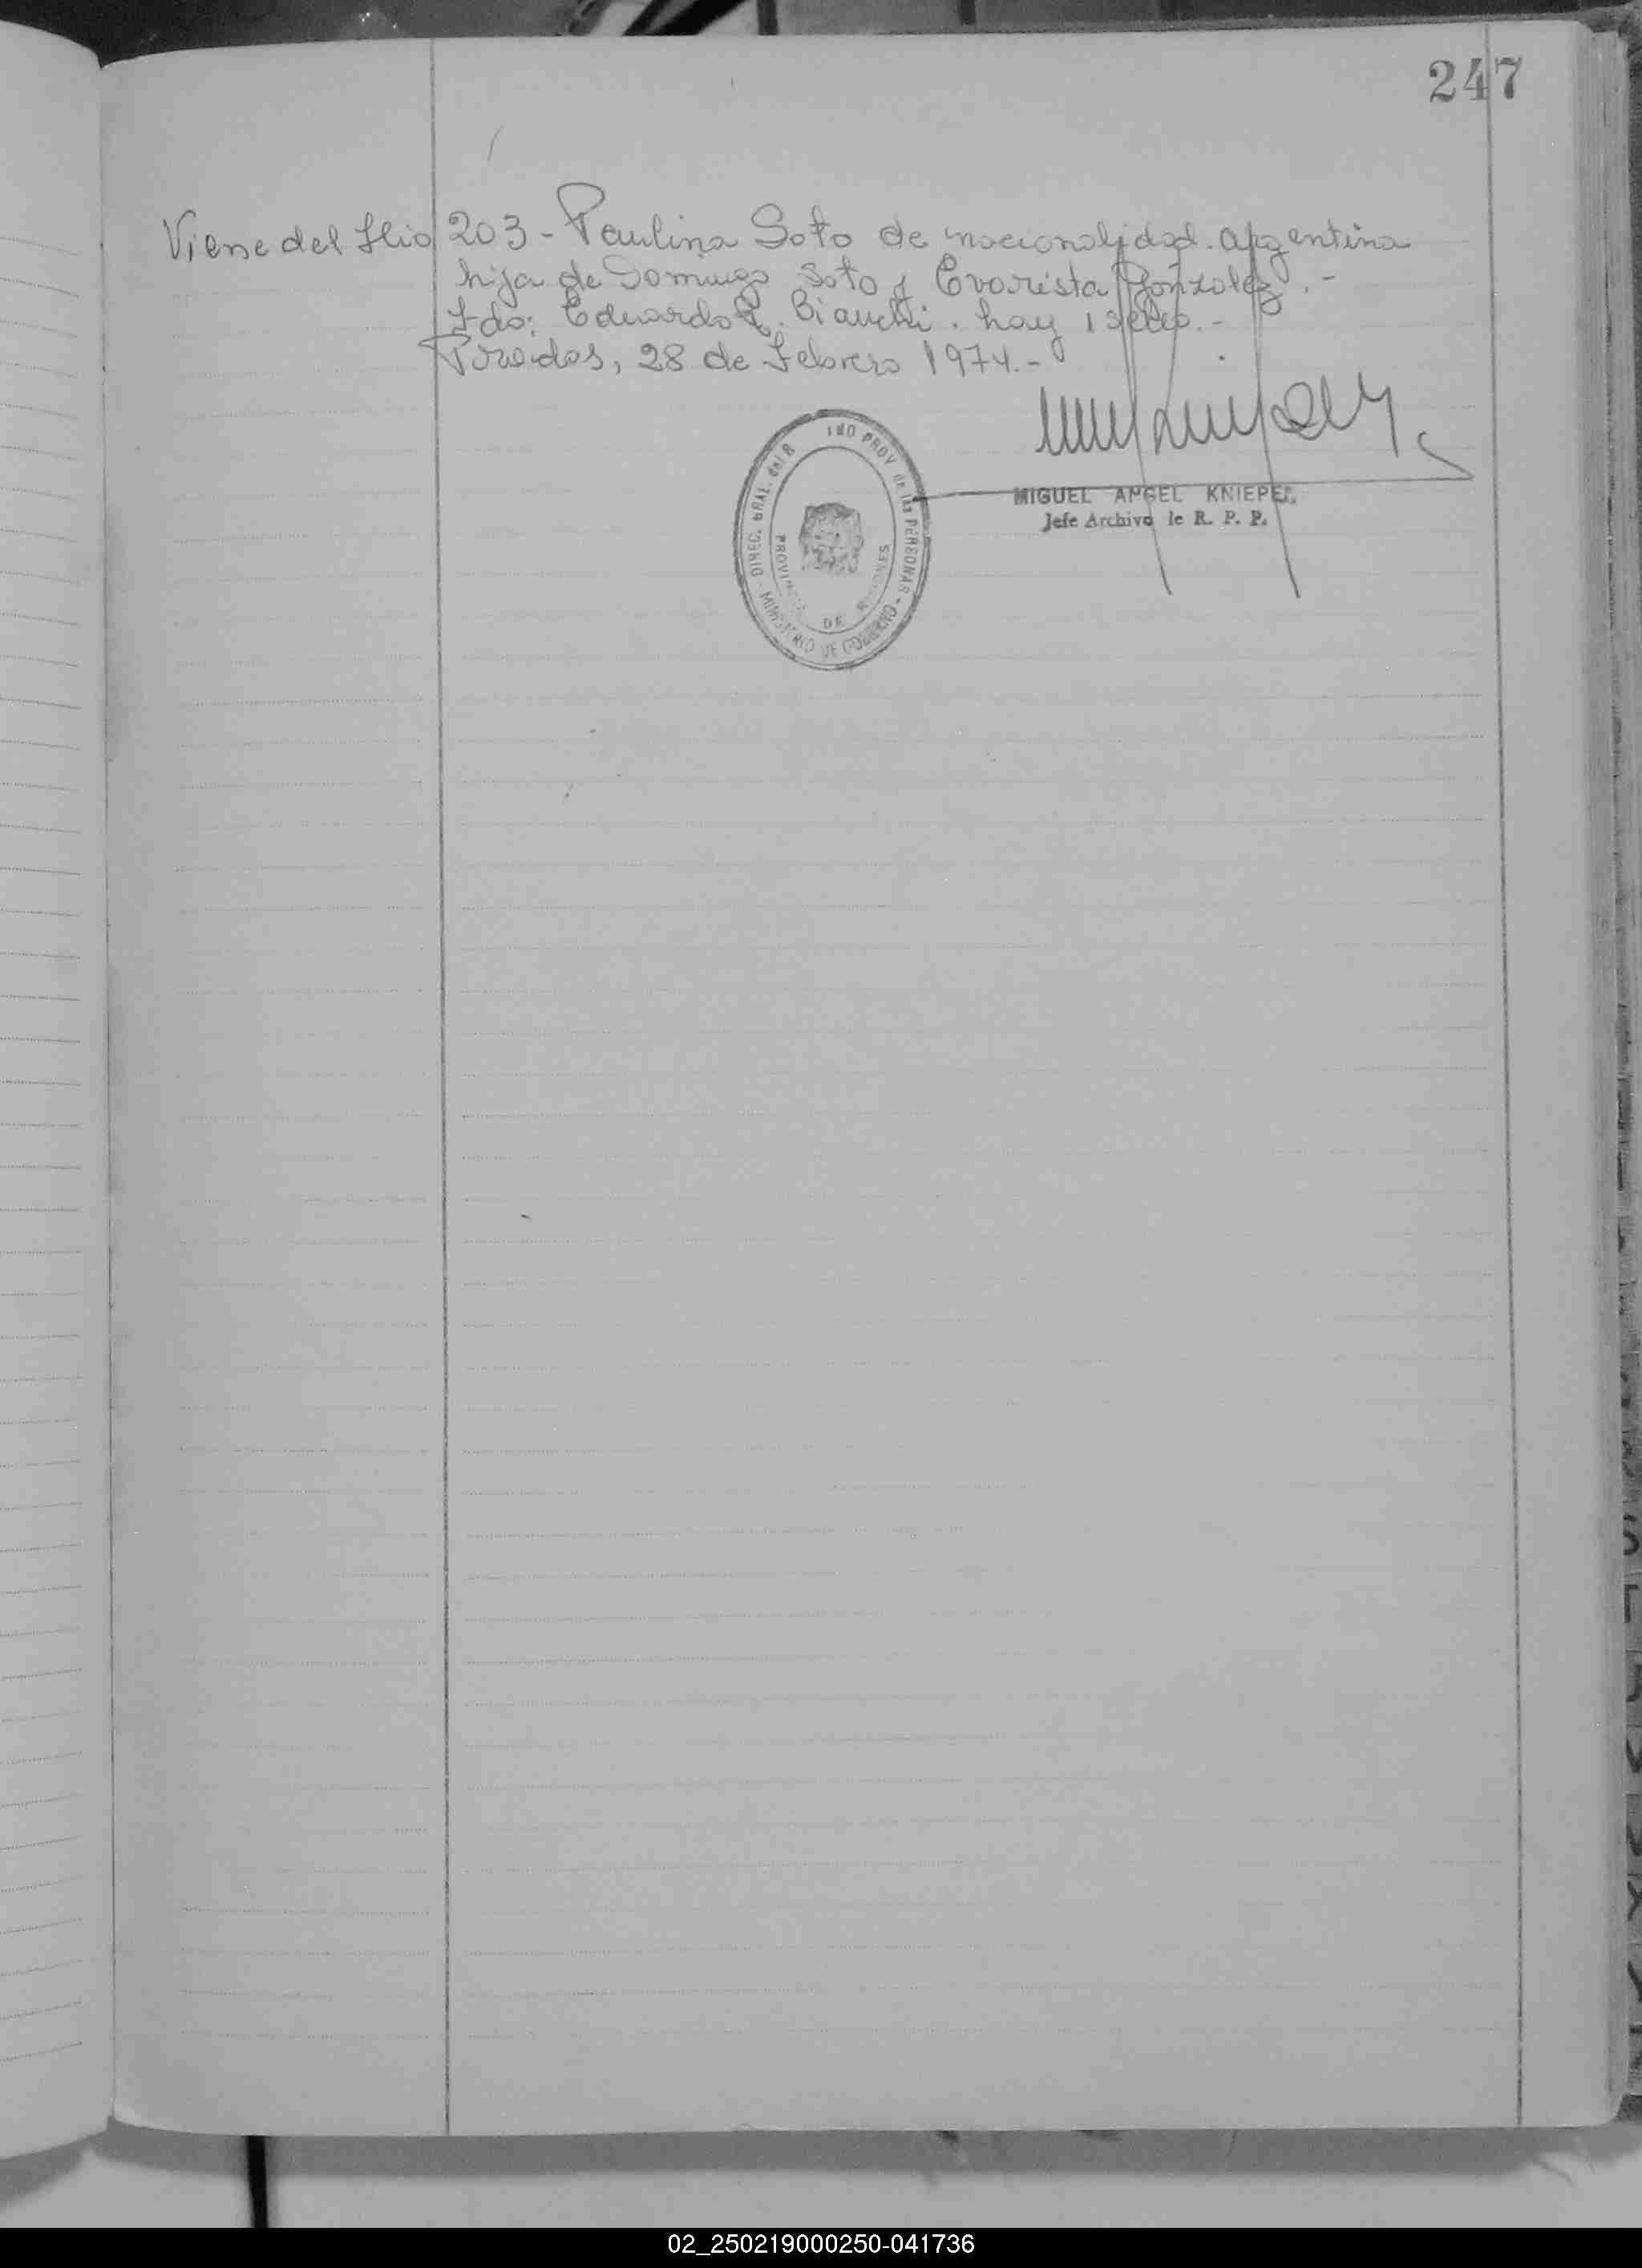 247
Viene del Flio 203 - Paulina Soto de nacionalidad argentina
hija de Domingo Soto y Evarista González. -
Fdo: Eduardo R. Bianchi. hay 1 sello. -
Posadas, 28 de Febrero 1974. -
DIREC. GRAL. del R PROV de las PERSONAS - MINISTERIO DE GOBIERNO -
PROVINCIA DE MISIONES
MIGUEL ANGEL KNIEPE
Jefe Archivo de R. P. P.
02_250219000250-041736